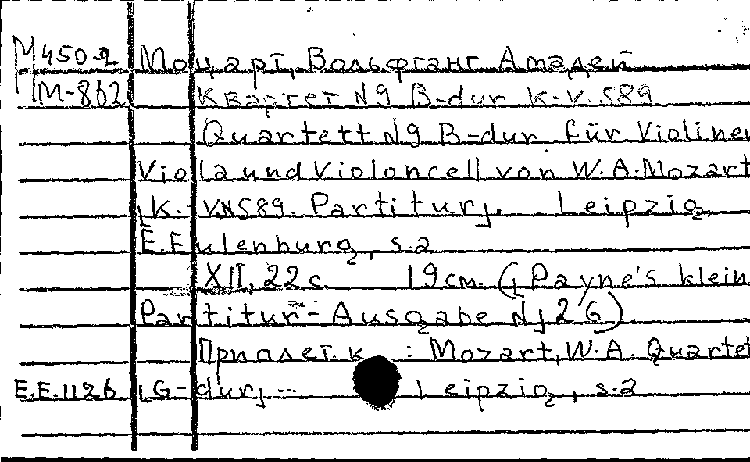 М450-2 Моцарт, Вольфганг Амадей
М-862 Квартет N9 B-dur K.V.589
Quartett N9 B-dur für Violinen
Viola und Violoncell von W.A.Mozart
K.-VN589. Partitur,. Leipzig
E.Eulenburg, s.a
XII, 22 с. 19см. (Payne's klein
Partitur-Ausgabe N126)
Приплет. к : Mozart, W.A. Quartet
E.E.1126 G-dur,-- Leipzig, s.a